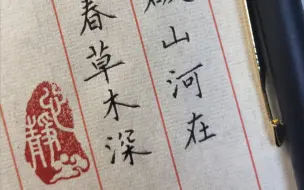 山河在
春草木深
静